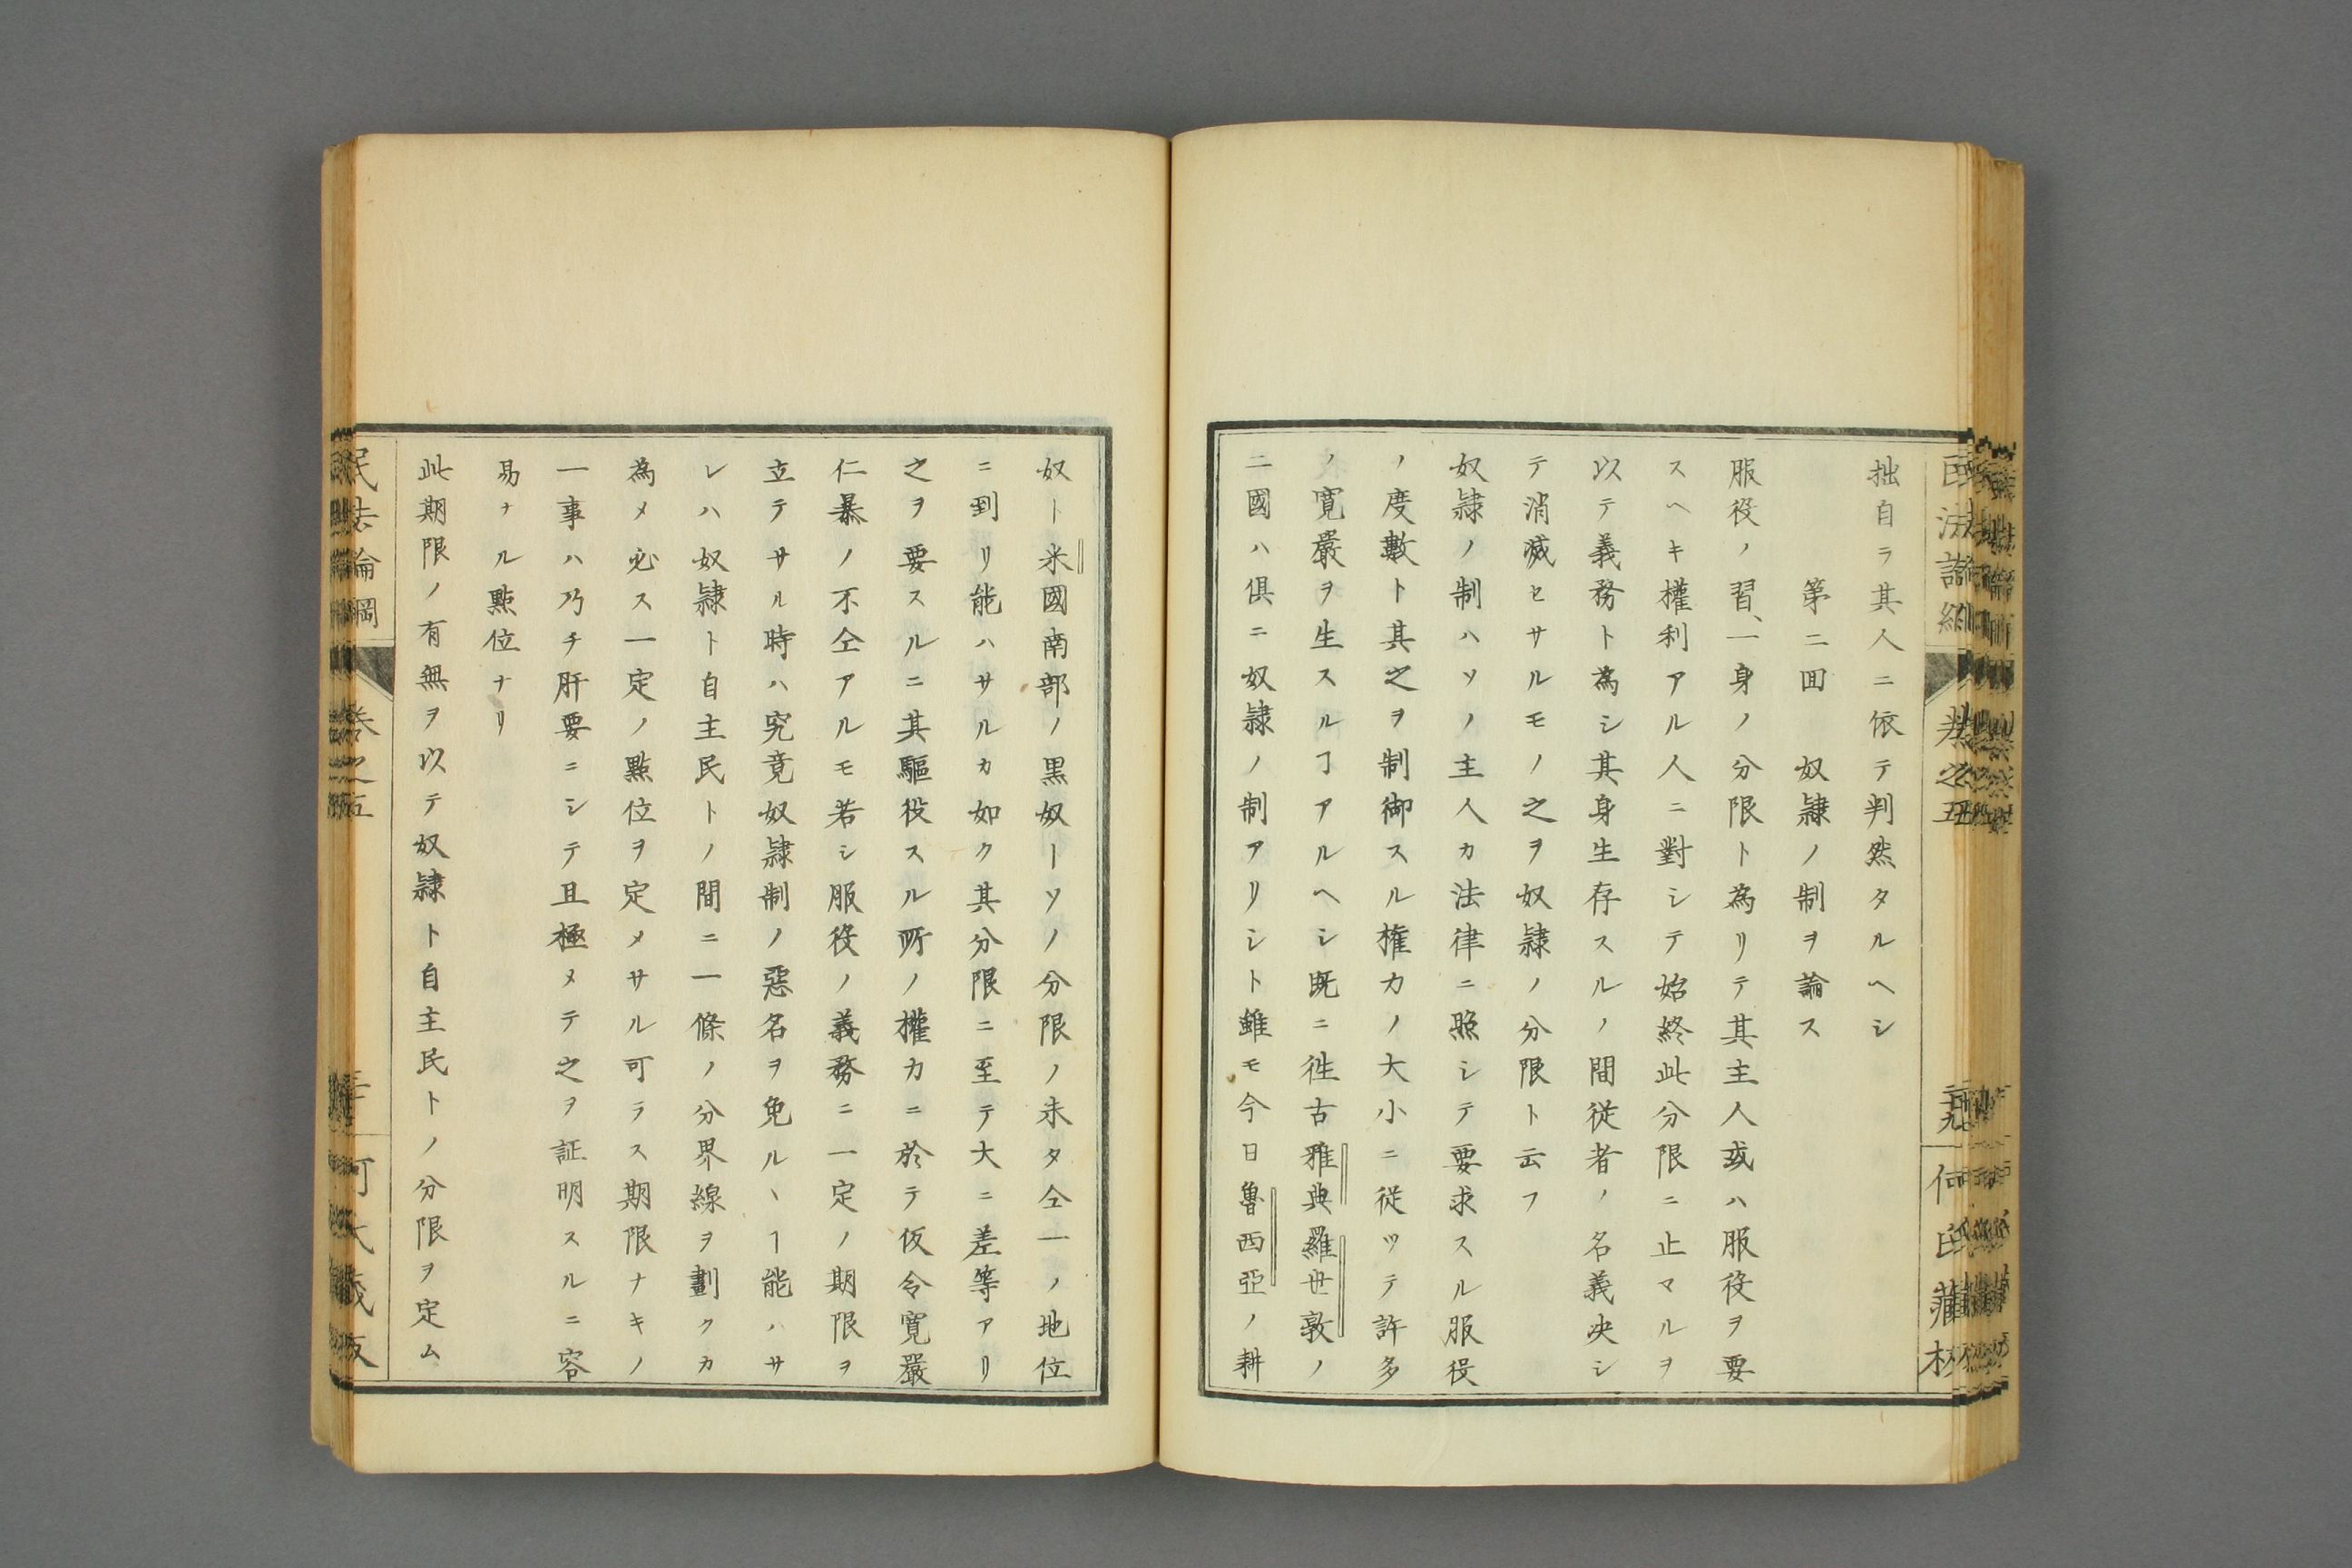 拙自ラ其人ニ依テ判然タルヘシ
第二囬　奴隷ノ制ヲ論ス
服役ノ習、一身ノ分限ト為リテ其主人或ハ服役ヲ要
スヘキ權利アル人ニ對シテ始終此分限ニ止マルヲ
以テ義務ト為シ其身生存スルノ間従者ノ名義决シ
テ消滅セサルモノ之ヲ奴隷ノ分限ト云フ
奴隷ノ制ハソノ主人カ法律ニ照シテ要求スル服役
ノ度數ト其之ヲ制御スル権力ノ大小ニ従ツテ許多
ノ寛嚴ヲ生スルヿアルヘシ既ニ徃古雅典羅世敦ノ
二國ハ俱ニ奴隷ノ制アリシト雖モ今日魯西亞ノ耕
奴ト米國南部ノ黒奴ーソノ分限ノ未タ仝一ノ地位
ニ到リ能ハサルカ如ク其分限ニ至テ大ニ差等アリ
之ヲ要スルニ其驅役スル所ノ權力ニ於テ仮令寛嚴
仁暴ノ不仝アルモ若シ服役ノ義務ニ一定ノ期限ヲ
立テサル時ハ究竟奴隷制ノ惡名ヲ免ルヽヿ能ハサ
レハ奴隷ト自主民トノ間ニ一條ノ分界線ヲ劃クカ
為メ必ス一定ノ點位ヲ定メサル可ラス期限ナキノ
一事ハ乃チ肝要ニシテ且極メテ之ヲ証明スルニ容
易ナル點位ナリ
此期限ノ有無ヲ以テ奴隷ト自主民トノ分限ヲ定ム
民法論綱
巻之五